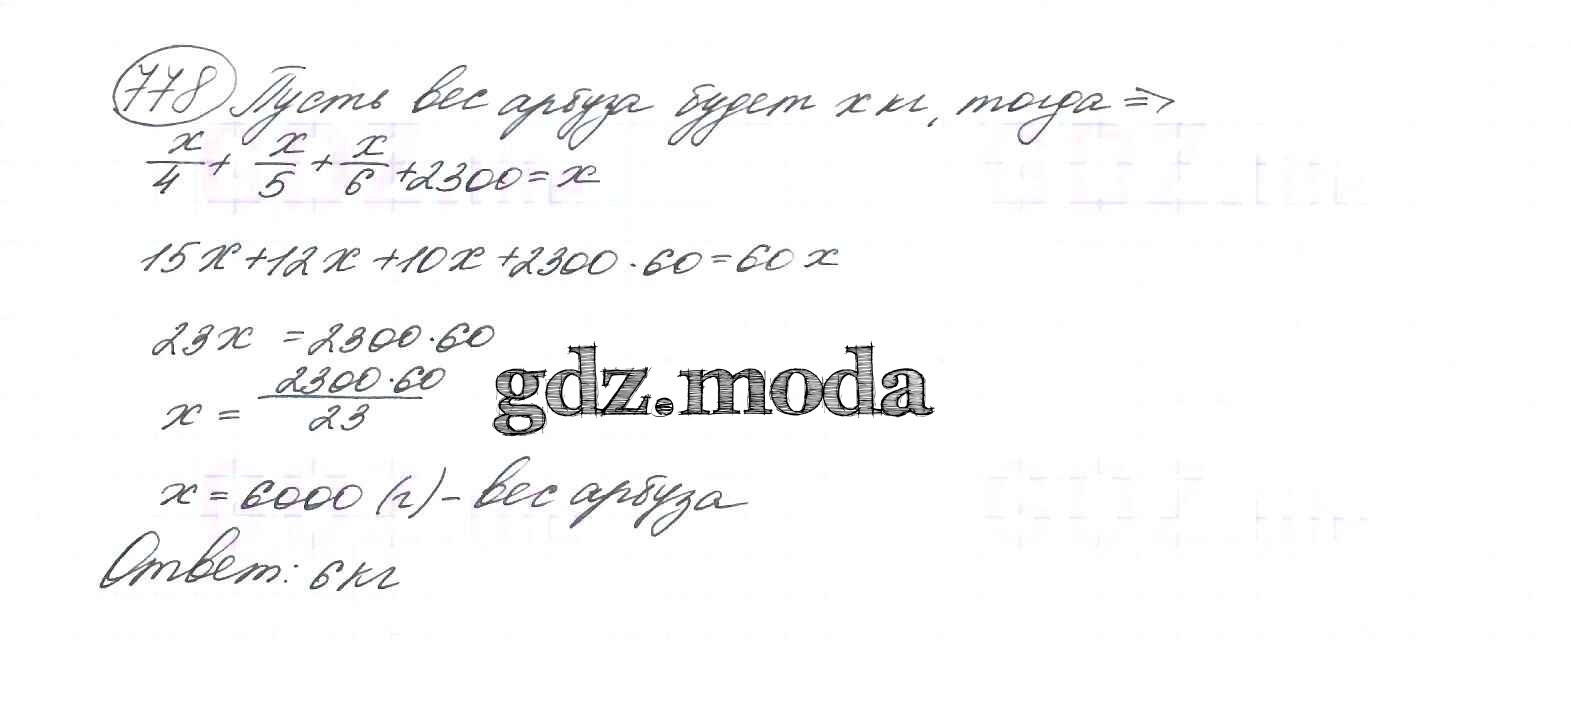 778 Пусть вес арбуза будет x кг, тогда =>
x/4 + x/5 + x/6 + 2300 = x
15x + 12x + 10x + 2300 · 60 = 60x
23x = 2300 · 60
x = 2300 · 60 / 23
gdz.moda
x = 6000 (г) – вес арбуза
Ответ: 6 кг